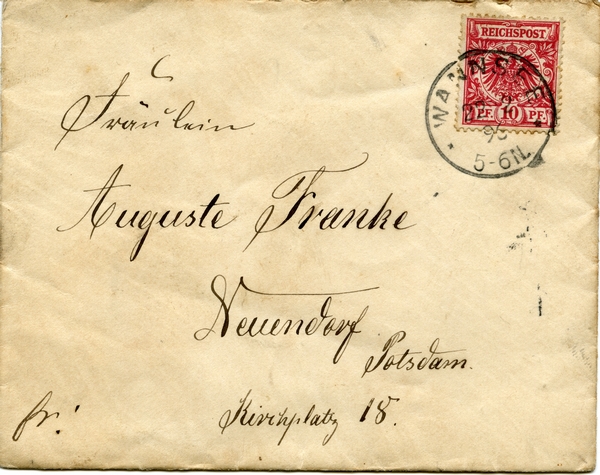 REICHSPOST
PF. 10 PF.
WANNSEE
5-6N.
Fräulein
Auguste Franke
Neuendorf
Potsdam.
Kirchplatz 18.
fr!